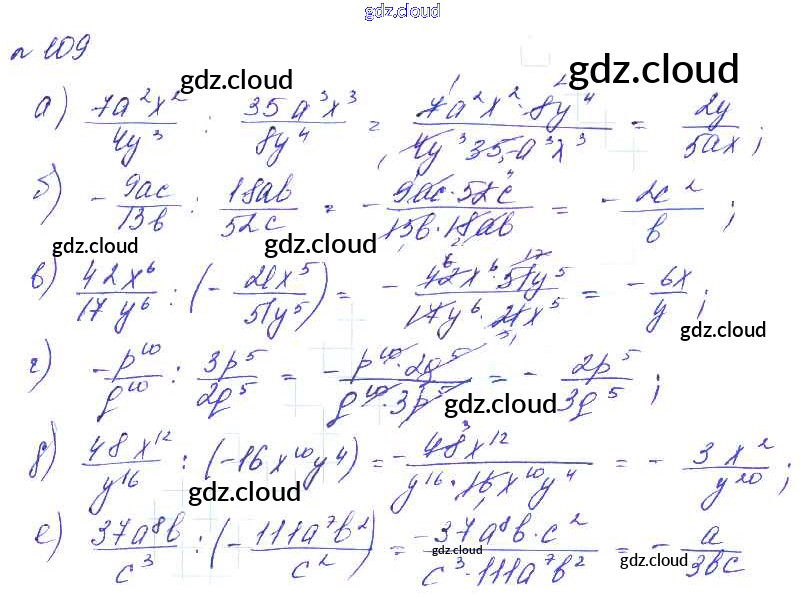 gdz.cloud
n 109
gdz.cloud gdz.cloud
а) 7a²x²/4y³ : 35a³x³/8y⁴ = 7a²x²·8y⁴/4y³35·a³x³ = 2y/5ax;
б) -9ac/13b : 18ab/52c = -9ac·52c/13b·18ab = -2c²/b;
gdz.cloud gdz.cloud
в) 42x⁶/17y⁶ : (-21x⁵/51y⁵) = -42x⁶·51y⁵/17y⁶·21x⁵ = -6x/y;
gdz.cloud
г) -p¹⁰/g¹⁰ : 3p⁵/2g⁵ = -p¹⁰·2g⁵/g¹⁰·3p⁵ = -2p⁵/3g⁵;
gdz.cloud
д) 48x¹²/y¹⁶ : (-16x¹⁰y⁴) = -48x¹²/y¹⁶·16x¹⁰y⁴ = -3x²/y²⁰;
gdz.cloud
е) 37a⁸b/c³ : (-111a⁷b²/c²) = -37a⁸b·c²/c³·111a⁷b² = -a/3bc
gdz.cloud gdz.cloud